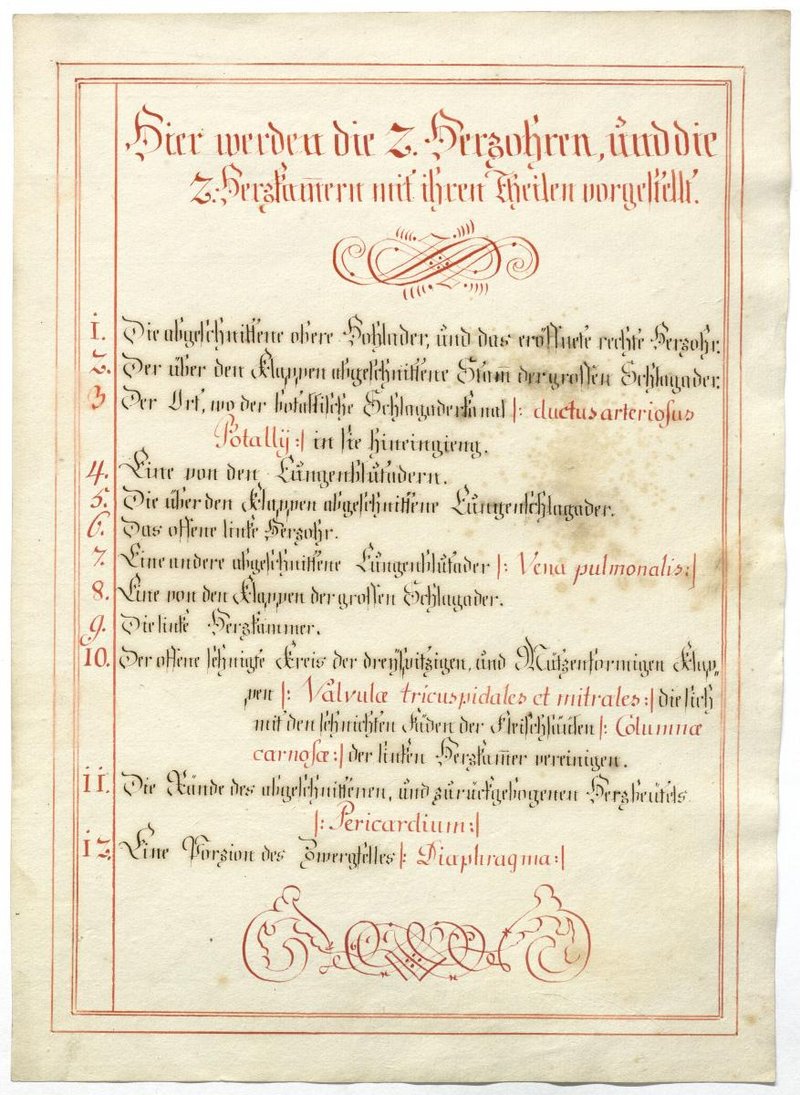 Hier werden die 2. Herzohren, und die
2. Herzkam̅ern mit ihren Theilen vorgestellt.
1. Die abgeschnittene obere Hohlader, und das eröffnete rechte Herzohr.
2. Der über den Klappen abgeschnittene Stam̅ der grossen Schlagader.
3 Der Ort, wo der botallische Schlagaderkanal |: ductus arteriosus
Botallij :| in sie hineingieng.
4. Eine von den Lungenblutadern.
5. Die über den Klappen abgeschnittene Lungenschlagader.
6. Das offene linke Herzohr.
7. Eine andere abgeschnittene Lungenblutader |: Vena pulmonalis :|
8. Eine von den Klappen der grossen Schlagader.
9. Die linke Herzkammer.
10. Der offene sehnigte Kreis der dreyspitzigen, und Mützenförmigen Klap„
pen |: Valvulæ tricuspidales et mitrales :| die sich
mit den sehnichten Fäden der Fleischsäulen |: Columnæ
carnosæ :| der linken Herzkam̅er vereinigen.
11. Die Rände des abgeschnittenen, und zurückgebogenen Herzbeutels
|: Pericardium :|
12. Eine Porzion des Zwergfelles |: Diaphragma :|